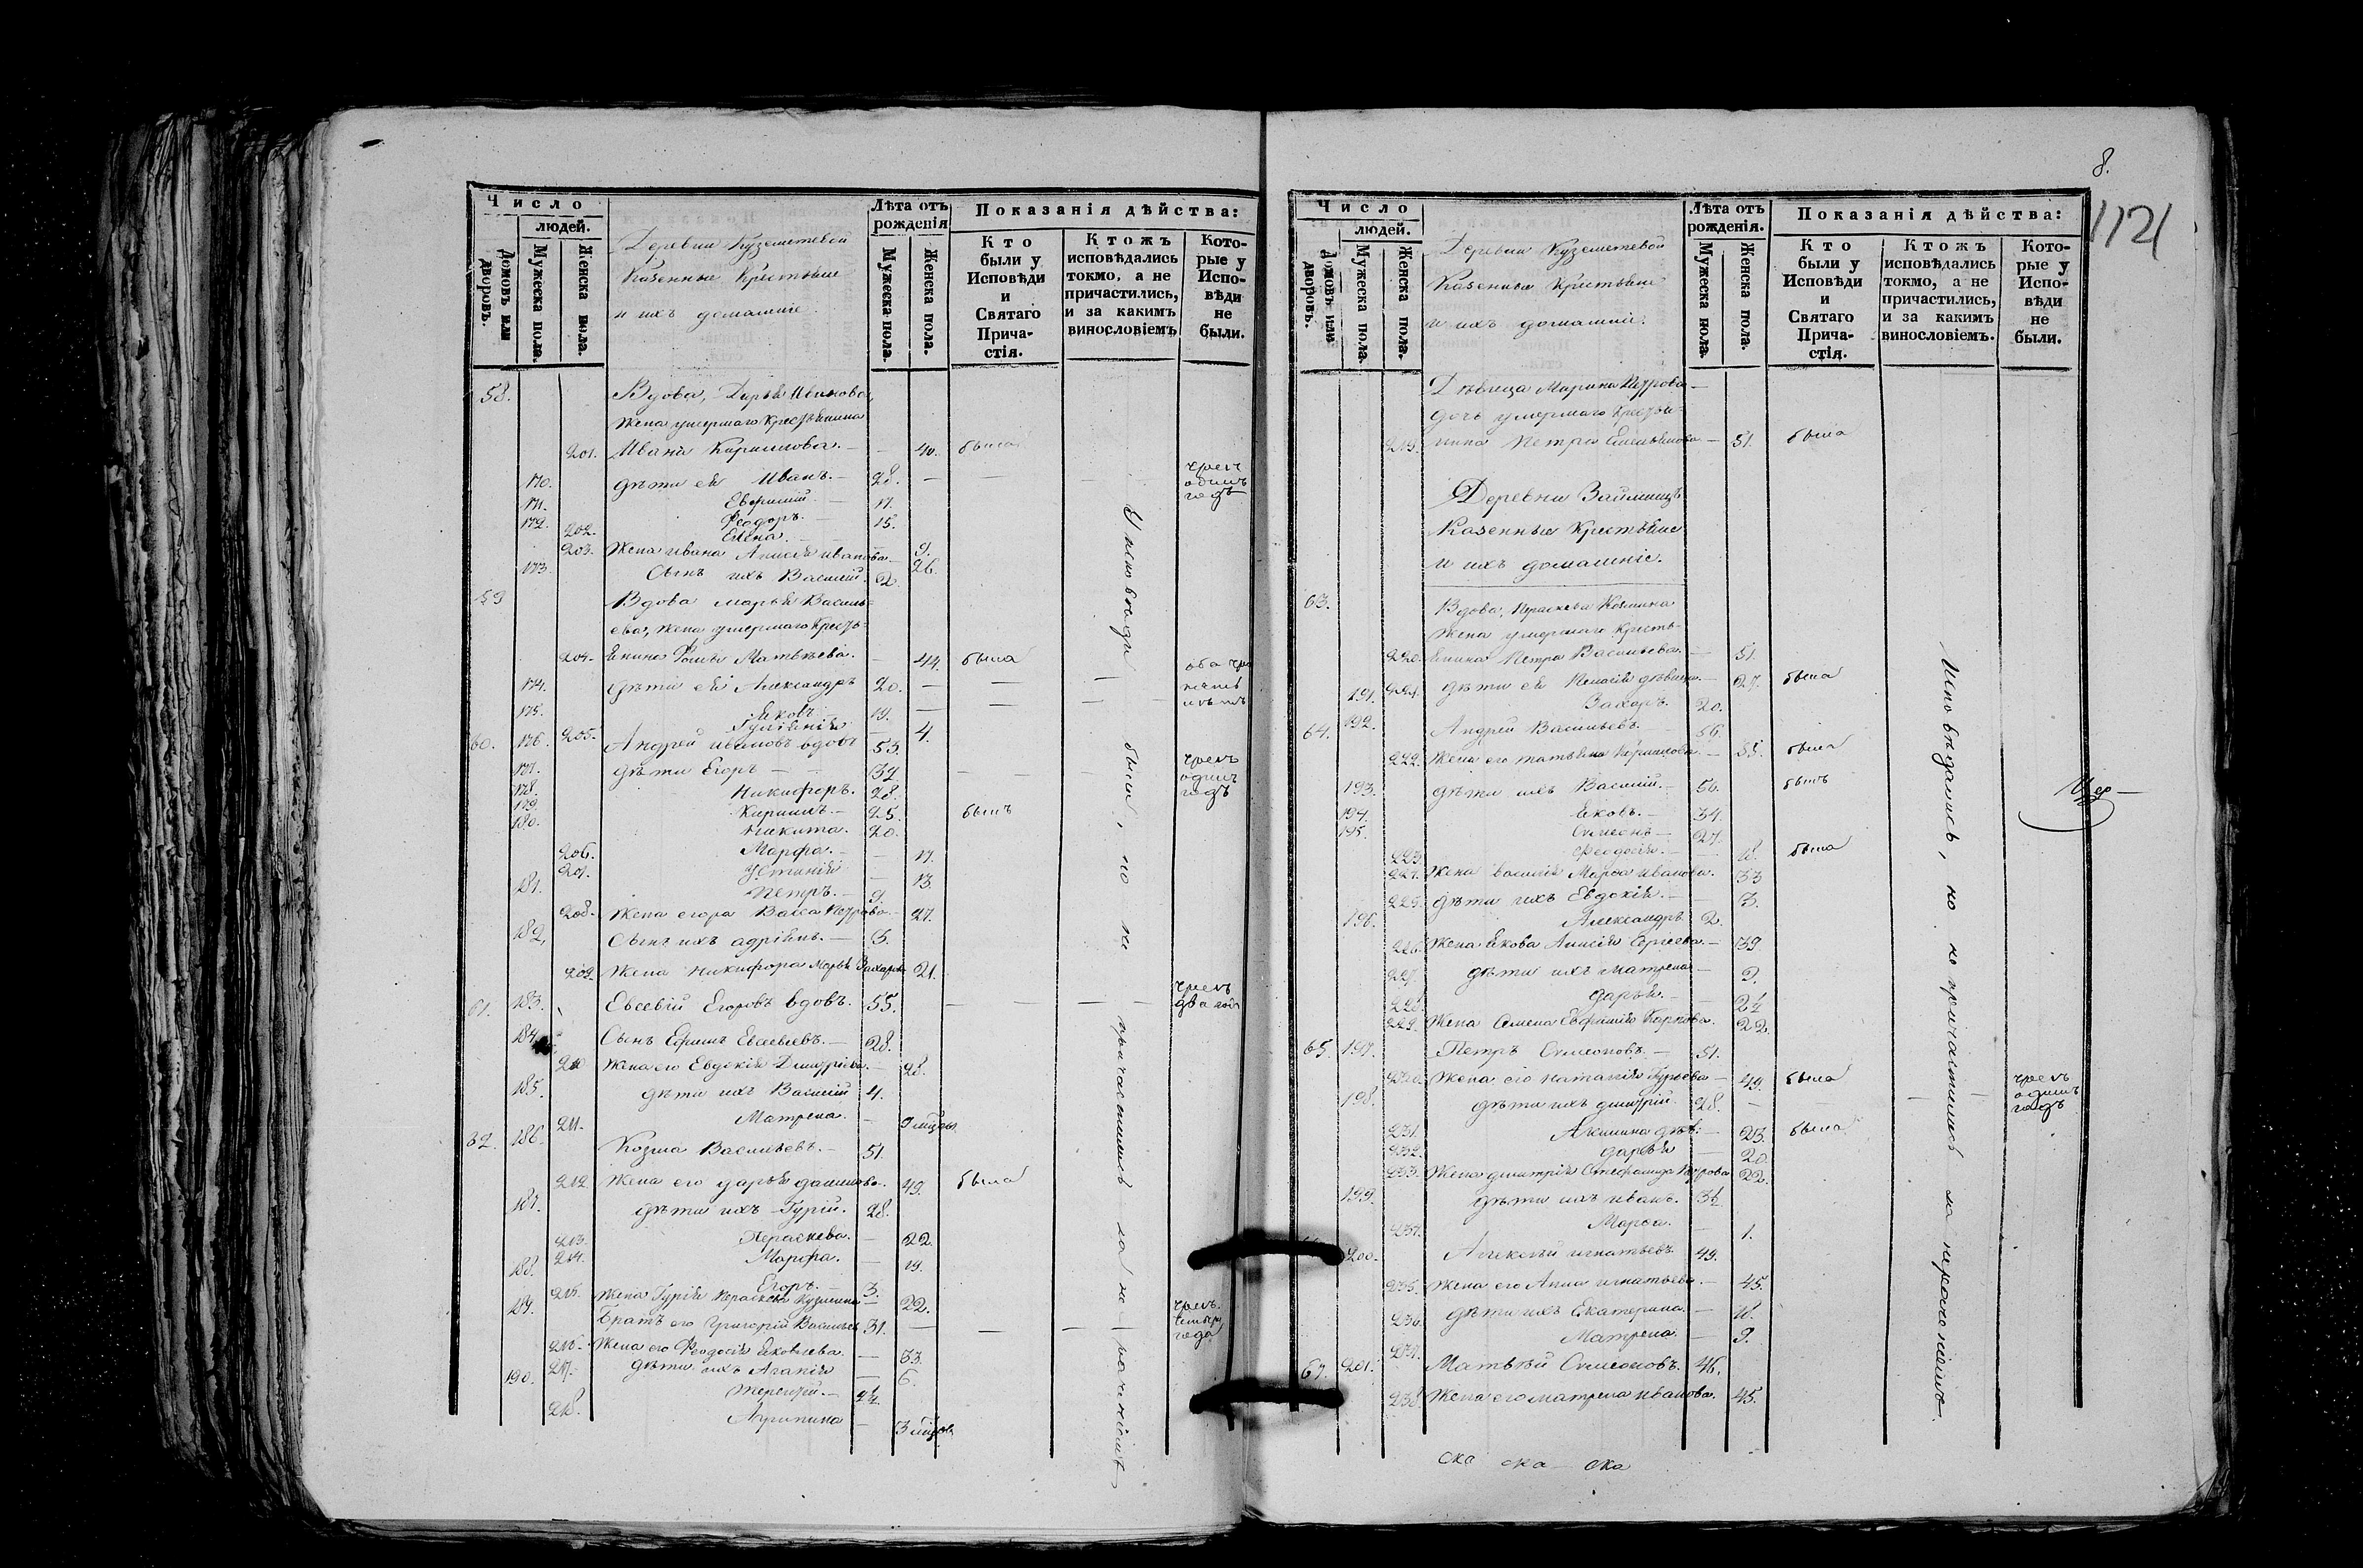 Число
людей.
Домовъ или дворовъ.
Мужеска пола.
Женска пола.
Деревни Куземетевой
Казенные Крестьяне
и ихъ домашніе.
Лѣта отъ рожденія
Мужеска пола.
Женска пола.
Показанія дѣйства:
Кто были у Исповѣди и Святаго Причастія.
Ктожъ исповѣдались токмо, а не причастились, и за какимъ винословіемъ
Которые у Исповѣди не были.
58. Вдова, Дарья Иванова,
жена умершаго Крестьянина
201. Ивана Кирилова. — 40. была
170. дѣти ея Иванъ. — 28. — — — чрезъ одинъ годъ
171. Евфимій — 17.
172. Феодоръ. — 15.
202. Елена. — 9.
203. Жена Ивана Анисія Иванова — 26.
173. Сынъ ихъ Василій. 2.
59 Вдова Марья Василь=
ева, жена умершаго Кресть=
204. янина Матвѣева. — 44. была
174. дѣти ея Александръ 20. — — —
175. Яковъ 19. — — —
205. — 4.
60. 176. Андрей Ивановъ вдовъ 53.
177. дѣти Егоръ — 32. — — — чрезъ одинъ годъ
178. Никифоръ. 28.
179. Кирилъ — 25. былъ
180. Никита. 20.
206. Марфа. — 17.
207. Устинія — 13.
181. Петръ. — 9.
208. Жена Егора Васса Петрова — 27.
182. Сынъ ихъ Адріянъ. — 3.
209. Жена Никифора Марья Захарова 21.
61. 183. Евсевій Егоровъ вдовъ. 55. — — — чрезъ два года
184. Сынъ Ефимъ Евсевьевъ. — 28.
210 Жена его Евдокія Димитріева — 28.
185. дѣти ихъ Василій 4.
211. Матрена. —
62. 186. Козма Васильевъ. — 51.
212 Жена его Дарья Данилова. 49. была
187. дѣти ихъ Гурій. 28.
213. Параскева. — 22.
214. Марфа. — 19.
188. Егоръ. — 3.
215. Жена Гурія Параскева Кузмина — 22.
189. Братъ его Григорій Васильевъ 31. — — — чрезъ четыре года
216. Жена его Феодосія Яковлева. — 33.
217. дѣти ихъ Агапія — 6.
190. Терентій. — 2½
218. Агрипина —
были, но не причастились по
8.
1121
Число
людей.
Домовъ или дворовъ.
Мужеска пола.
Женска пола.
Деревни Куземетевой
Казенные Крестьяне
и ихъ домашніе.
Лѣта отъ рожденія.
Мужеска пола.
Женска пола.
Показанія дѣйства:
Кто были у Исповѣди и Святаго Причастія.
Ктожъ исповѣдались токмо, а не причастились, и за какимъ винословіемъ.
Которые у Исповѣди не были.
Дѣвица Марина Петрова —
дочь умершаго Крестья=
219. нина Петра Емельянова — 51. была
Деревни Займищъ
Казенные Крестьяне
и ихъ домашніе.
63. Вдова, Параскева Козмина
жена умершаго Кресть=
220. янина Петра Васильева. — 51.
221. дѣти ея дѣвица. — 27. была
191. Захаръ. 20.
64. 192. Андрей Васильевъ. 56.
222. Жена его Татьяна Кирилова. — 55. была
193. дѣти ихъ Василій. — 36. былъ
194. Яковъ. — 34.
195. Симеонъ — 27.
223. Феодосія. — 18. была
224. Жена Василія Марѳа Иванова. 33
225. дѣти ихъ Евдокія. — 3.
196. Александръ 2.
226. Жена Якова Анисія Сергіева — 39
227. дѣти ихъ Матрена — 9.
228. Дарья. — 2½
229. Жена Семена Евфимія Карпова. 22.
65. 197. Петръ Симеоновъ. — 51.
230. Жена его Наталія Гурьева — 49. была
198. дѣти ихъ Димитрій. 28. — — — чрезъ одинъ годъ
231. Акилина дѣв: — 23. была
232. Дарья — 20.
233. Жена Димитрія Степанида Петрова 22.
199. дѣти ихъ Иванъ. 3½
234. Марѳа. — 1.
200. Алексѣй Игнатьевъ 49.
235. Жена его Анна Игнатьева. — 45.
236. дѣти ихъ Екатерина. — 18.
237. Матрена. — 9.
67. 201. Матвѣй Симеоновъ. 46.
238. Жена его Матрена Иванова. 45.
Исповѣдались, но не причастились по нерасположенію.
ска ска — ска